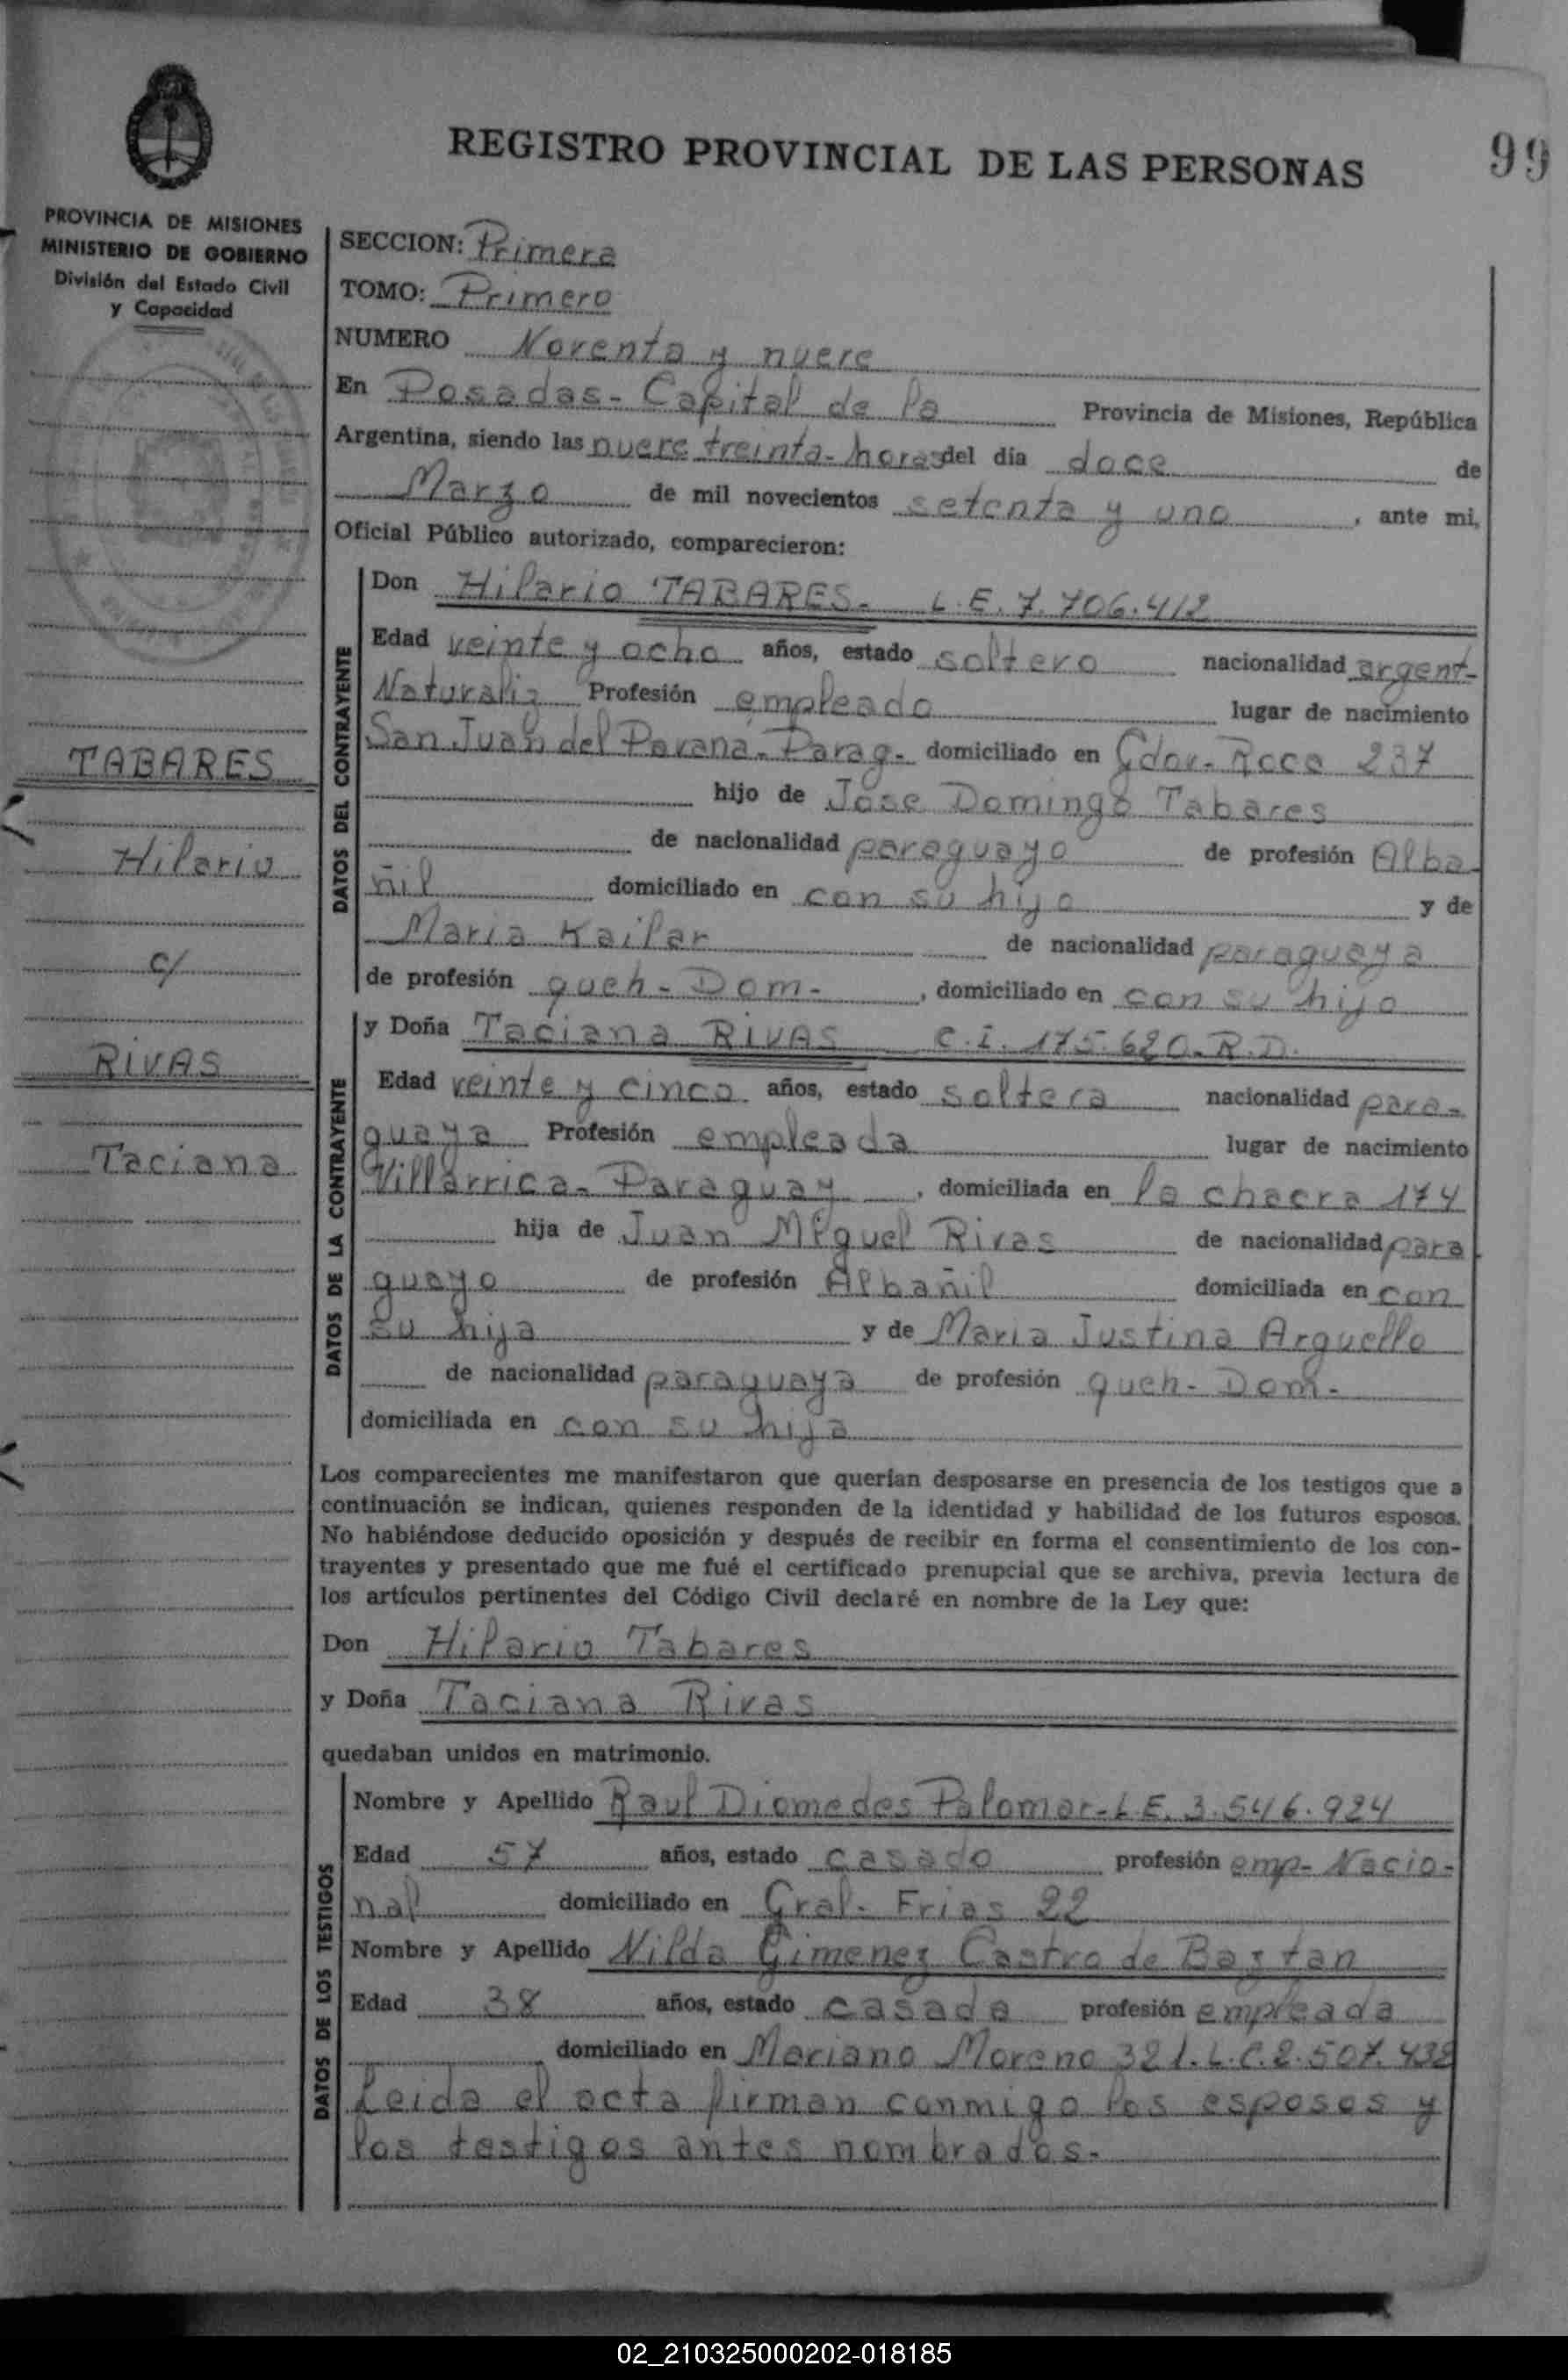 REGISTRO PROVINCIAL DE LAS PERSONAS
99
PROVINCIA DE MISIONES
MINISTERIO DE GOBIERNO
División del Estado Civil
y Capacidad
TABARES
Hilario
c/
RIVAS
Taciana
SECCION: Primera
TOMO: Primero
NUMERO Noventa y nueve
En Posadas - Capital de la Provincia de Misiones, República
Argentina, siendo las nueve treinta - horas del día doce de
Marzo de mil novecientos setenta y uno, ante mi,
Oficial Público autorizado, comparecieron:
DATOS DEL CONTRAYENTE
Don Hilario TABARES - L.E. 7.706.412
Edad veinte y ocho años, estado soltero nacionalidad argent-
Naturaliz Profesión empleado lugar de nacimiento
San Juan del Parana - Parag - domiciliado en Gdor - Roca 237
hijo de Jose Domingo Tabares
de nacionalidad paraguayo de profesión Alba-
ñil domiciliado en con su hijo y de
Maria Kailer de nacionalidad paraguaya
de profesión queh - Dom -, domiciliado en con su hijo
DATOS DE LA CONTRAYENTE
y Doña Taciana RIVAS C.I. 175.620 - R.D.
Edad veinte y cinco años, estado soltera nacionalidad para-
guaya Profesión empleada lugar de nacimiento
Villarrica - Paraguay, domiciliada en la chacra 174
hija de Juan Miguel Rivas de nacionalidad para
guayo de profesión Albañil domiciliada en con
su hija y de Maria Justina Arguello
de nacionalidad paraguaya de profesión queh - Dom -
domiciliada en con su hija
Los comparecientes me manifestaron que querían desposarse en presencia de los testigos que a
continuación se indican, quienes responden de la identidad y habilidad de los futuros esposos.
No habiéndose deducido oposición y después de recibir en forma el consentimiento de los con-
trayentes y presentado que me fué el certificado prenupcial que se archiva, previa lectura de
los artículos pertinentes del Código Civil declaré en nombre de la Ley que:
Don Hilario Tabares
y Doña Taciana Rivas
quedaban unidos en matrimonio.
DATOS DE LOS TESTIGOS
Nombre y Apellido Raul Diomedes Palomar - L.E. 3.546.924
Edad 57 años, estado casado profesión emp - Nacio-
nal domiciliado en Gral - Frias 22
Nombre y Apellido Nilda Gimenez Castro de Baztan
Edad 38 años, estado casada profesión empleada
domiciliado en Mariano Moreno 321 - L.C. 2.507.438
Leida el acta firman conmigo los esposos y
los testigos antes nombrados -
02_210325000202-018185